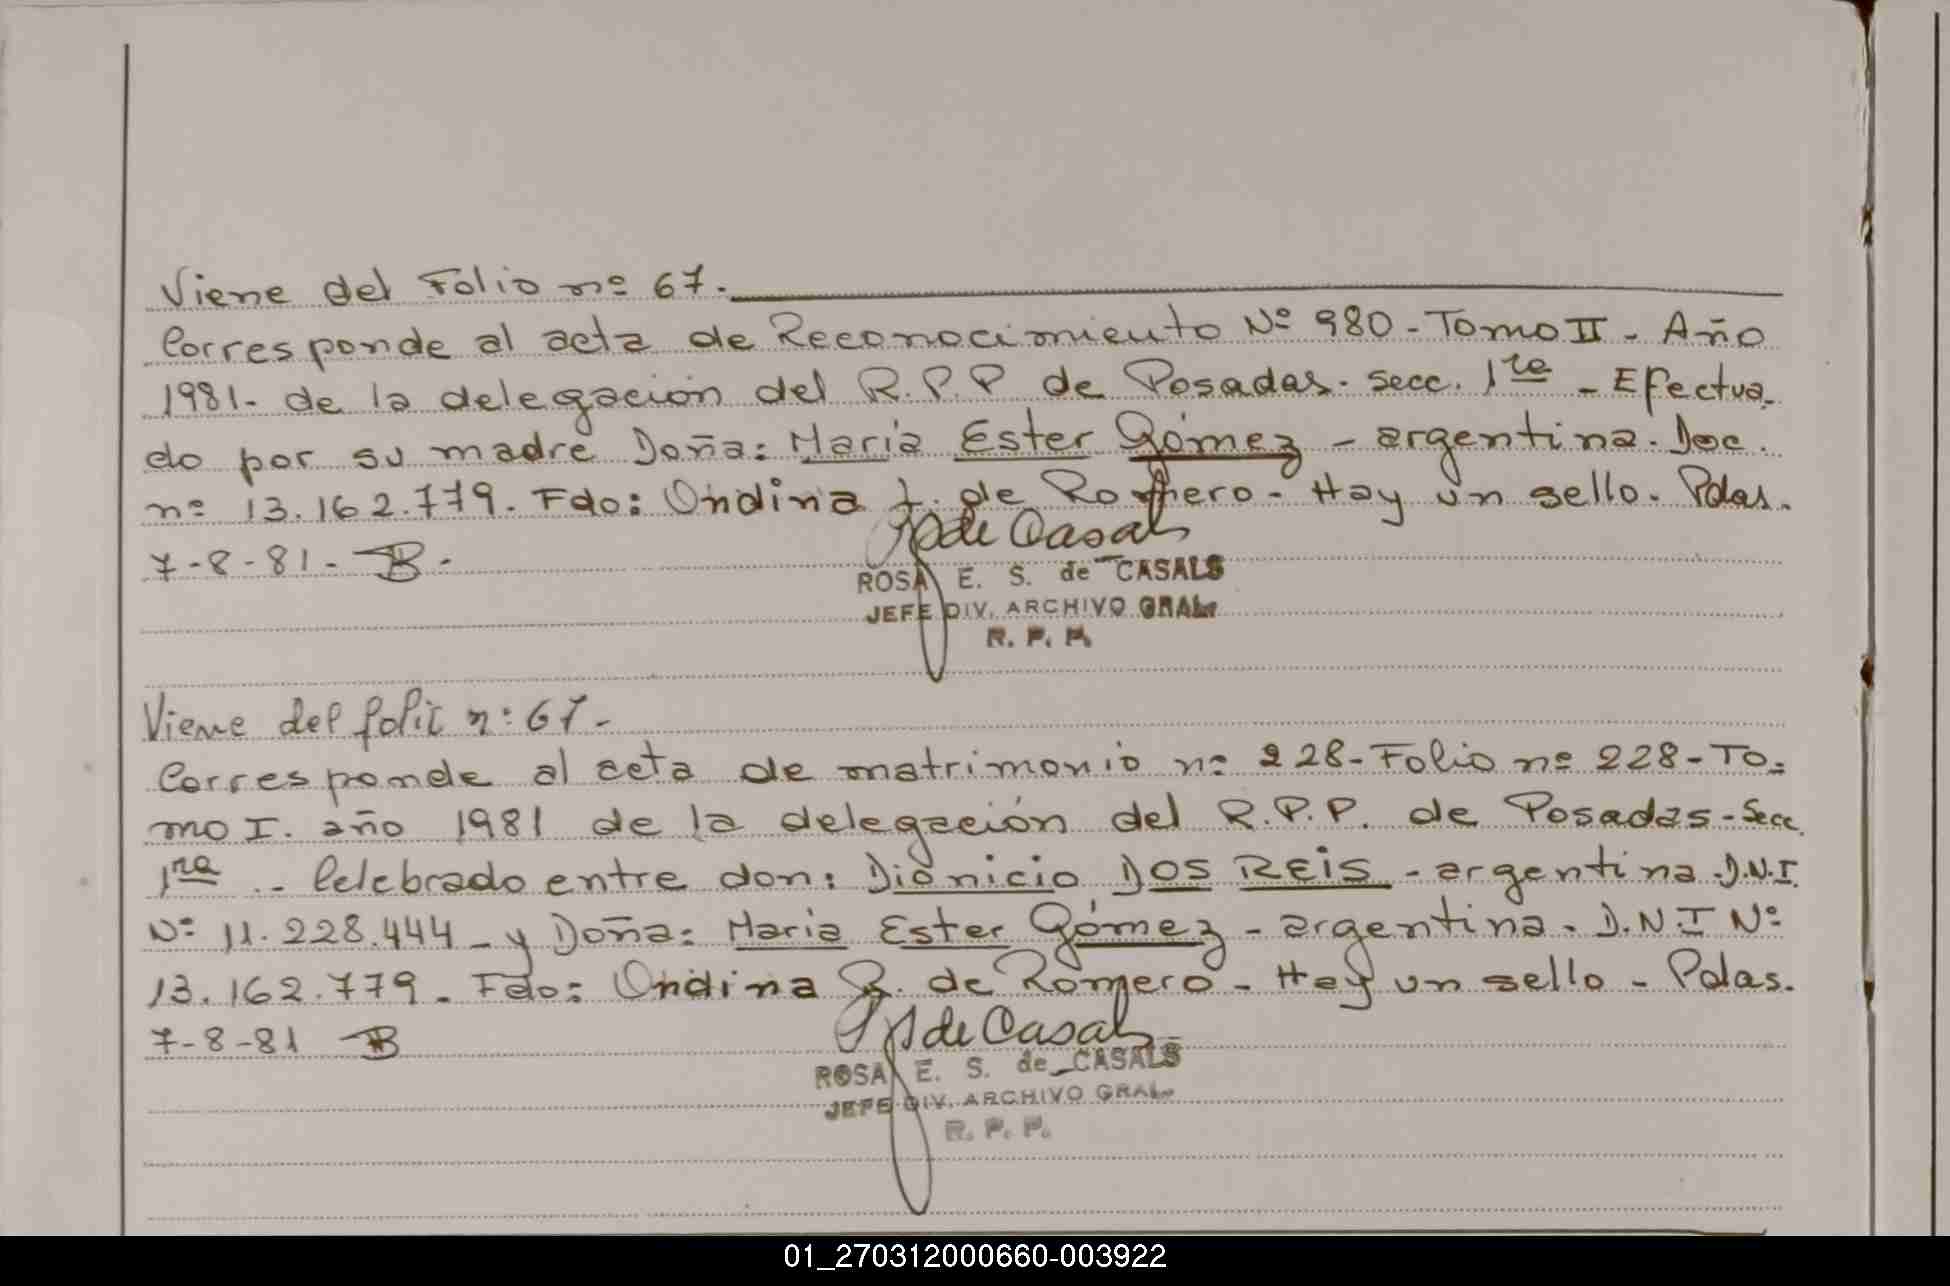 Viene del Folio nº 67.
Corresponde al acta de Reconocimiento Nº 980 - Tomo II - Año
1981 - de la delegación del R.P.P de Posadas. secc. 1ra - Efectua-
do por su madre Doña: María Ester Gómez - argentina. Doc.
nº 13.162.779. Fdo: Ondina de Romero - Hay un sello. Pdas.
7-8-81 - B.
de Casals
ROSA E. S. de CASALS
JEFE DIV. ARCHIVO GRAL.
R. P. P.
Viene del folio nº 67 -
Corresponde al acta de matrimonio nº 228 - Folio nº 228 - To-
mo I. año 1981 de la delegación del R.P.P. de Posadas - Secc.
1ra - Celebrado entre don: Dionicio DOS REIS - argentina. D.N.I.
Nº 11.228.444 - y Doña: María Ester Gómez - argentina. D.N.I Nº
13.162.779. Fdo: Ondina de Romero - Hay un sello - Pdas.
7-8-81 B
de Casals
ROSA E. S. de CASALS
JEFE DIV. ARCHIVO GRAL.
R. P. P.
01_270312000660-003922